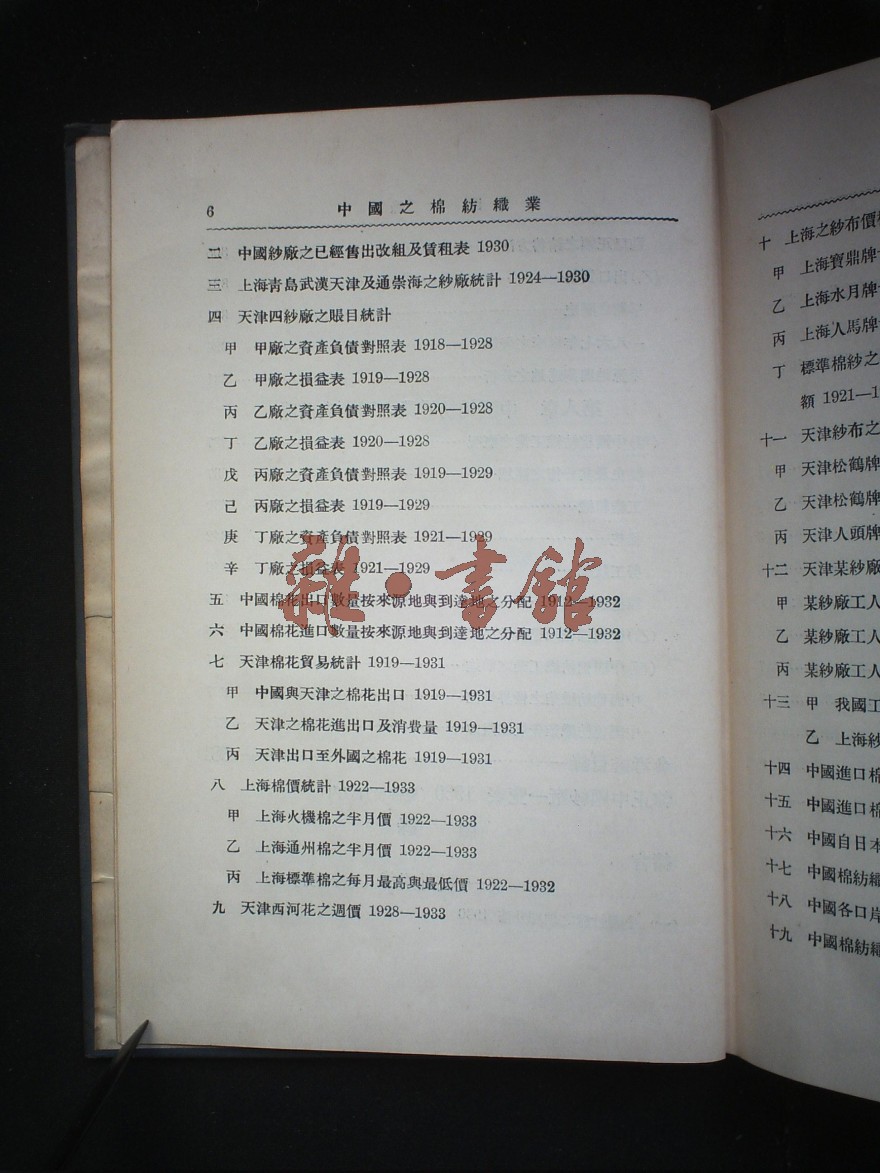 6 中國之棉紡織業
二 中國紗廠之已經售出改組及賃租表 1930
三 上海青島武漢天津及通崇海之紗廠統計 1924—1930
四 天津四紗廠之賬目統計
甲 甲廠之資產負債對照表 1918—1928
乙 甲廠之損益表 1919—1928
丙 乙廠之資產負債對照表 1920—1928
丁 乙廠之損益表 1920—1928
戊 丙廠之資產負債對照表 1919—1929
己 丙廠之損益表 1919—1929
庚 丁廠之資產負債對照表 1921—1929
辛 丁廠之損益表 1921—1929
五 中國棉花出口數量按來源地與到達地之分配 1912—1932
六 中國棉花進口數量按來源地與到達地之分配 1912—1932
七 天津棉花貿易統計 1919—1931
甲 中國與天津之棉花出口 1919—1931
乙 天津之棉花進出口及消費量 1919—1931
丙 天津出口至外國之棉花 1919—1931
八 上海棉價統計 1922—1933
甲 上海火機棉之半月價 1922—1933
乙 上海通州棉之半月價 1922—1933
丙 上海標準棉之每月最高與最低價 1922—1932
九 天津西河花之週價 1928—1933
雜·書館
十 上海之紗布價
甲 上海寶鼎牌
乙 上海水月牌
丙 上海人馬牌
丁 標準棉紗之
額 1921—1
十一 天津紗布之
甲 天津松鶴牌
乙 天津松鶴牌
丙 天津人頭牌
十二 天津某紗廠
甲 某紗廠工人
乙 某紗廠工人
丙 某紗廠工人
十三 甲 我國工
乙 上海紗
十四 中國進口棉
十五 中國進口棉
十六 中國自日本
十七 中國棉紡織
十八 中國各口岸
十九 中國棉紡織